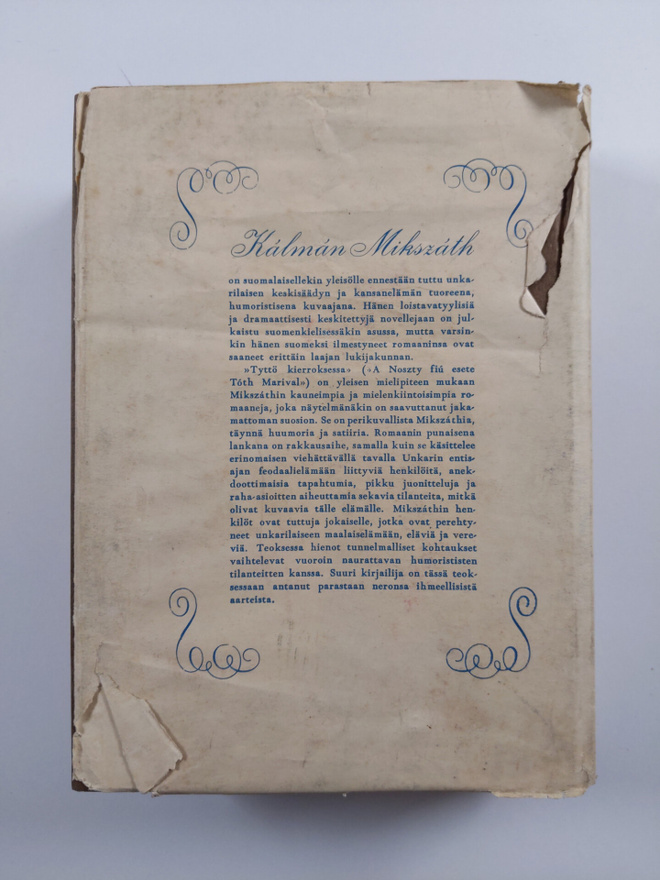 Kálmán Mikszáth
on suomalaisellekin yleisölle ennestään tuttu unka-
rilaisen keskisäädyn ja kansanelämän tuoreena,
humoristisena kuvaajana. Hänen loistavatyylisiä
ja dramaattisesti keskitettyjä novellejaan on jul-
kaistu suomenkielisessäkin asussa, mutta varsin-
kin hänen suomeksi ilmestyneet romaaninsa ovat
saaneet erittäin laajan lukijakunnan.
»Tyttö kierroksessa» (»A Noszty fiú esete
Tóth Marival») on yleisen mielipiteen mukaan
Mikszáthin kauneimpia ja mielenkiintoisimpia ro-
maaneja, joka näytelmänäkin on saavuttanut jaka-
mattoman suosion. Se on perikuvallista Mikszáthia,
täynnä huumoria ja satiiria. Romaanin punaisena
lankana on rakkausaihe, samalla kuin se käsittelee
erinomaisen viehättävällä tavalla Unkarin entis-
ajan feodaalielämään liittyviä henkilöitä, anek-
doottimaisia tapahtumia, pikku juonitteluja ja
raha-asioitten aiheuttamia sekavia tilanteita, mitkä
olivat kuvaavia tälle elämälle. Mikszáthin hen-
kilöt ovat tuttuja jokaiselle, jotka ovat perehty-
neet unkarilaiseen maalaiselämään, eläviä ja vere-
viä. Teoksessa hienot tunnelmalliset kohtaukset
vaihtelevat vuoroin naurattavan humorististen
tilanteitten kanssa. Suuri kirjailija on tässä teok-
sessaan antanut parastaan neronsa ihmeellisistä
aarteista.